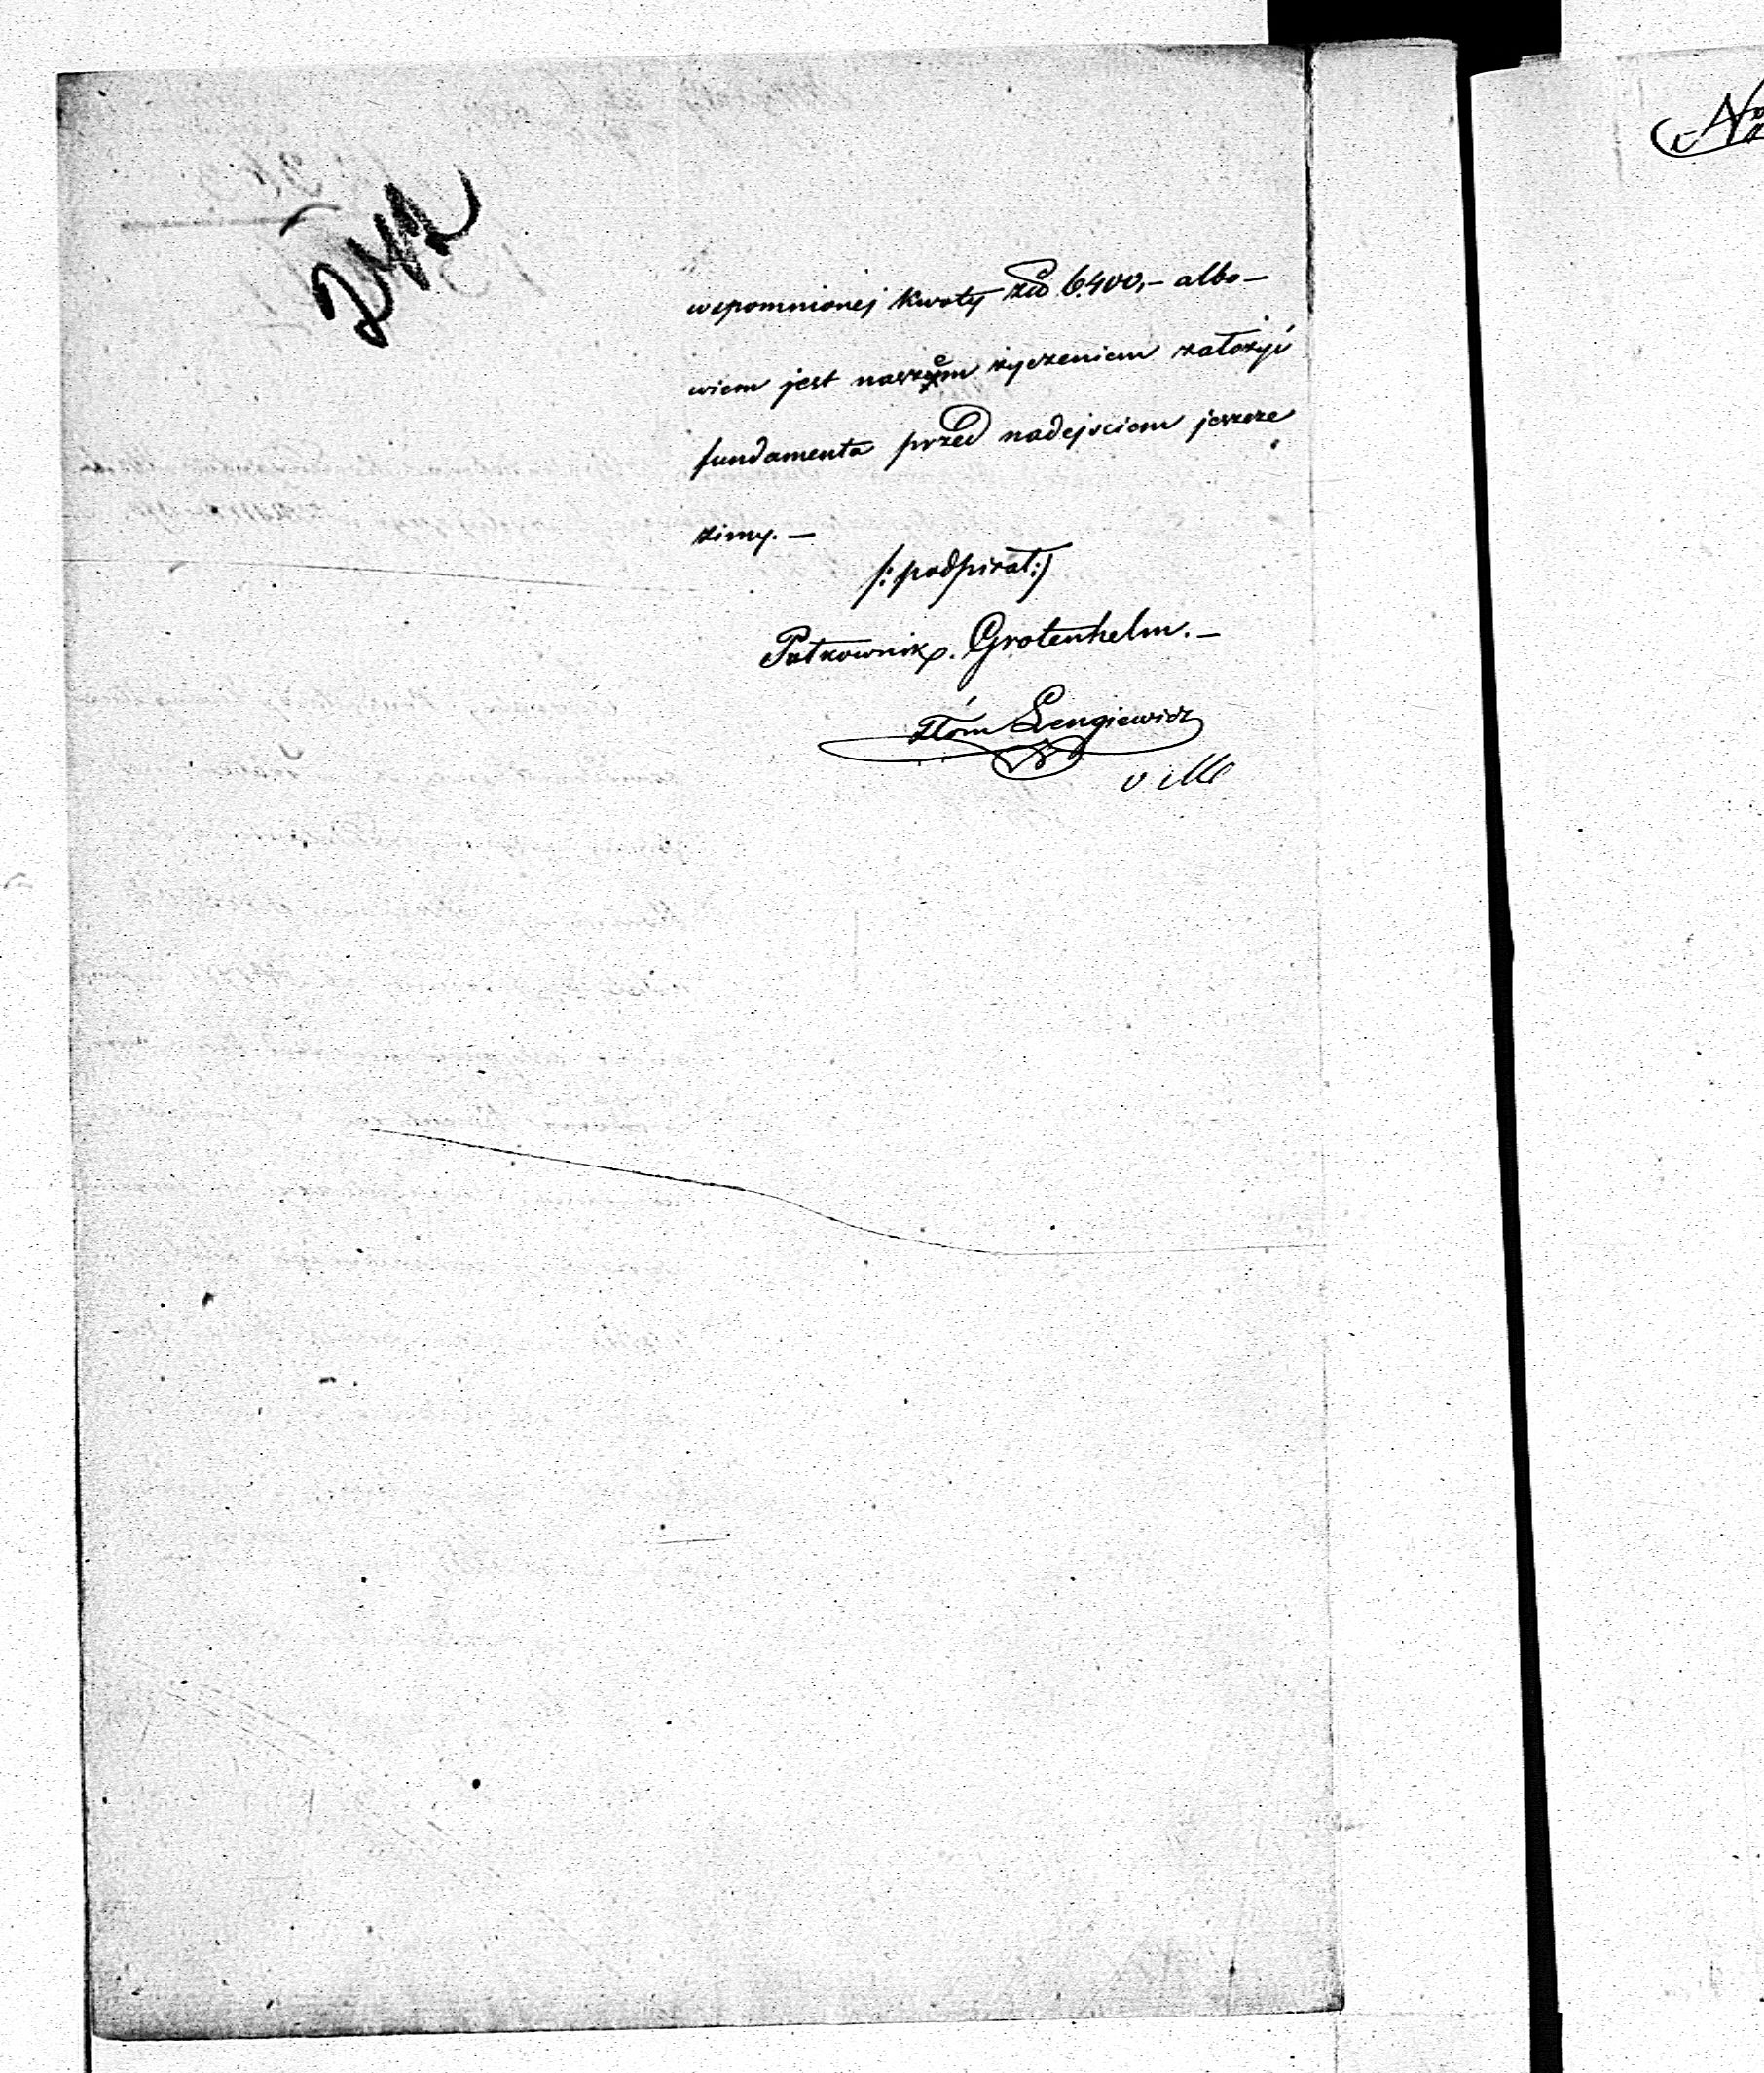 wspomnionej kwoty złp 6.400,– albo–
wiem jest naszem życzeniem założyć
fundamenta przed nadejściem jeszcze
zimy. –
/: podpisał :/
Pułkownik. Grotenhelm. –
Tłóm Lengiewicz